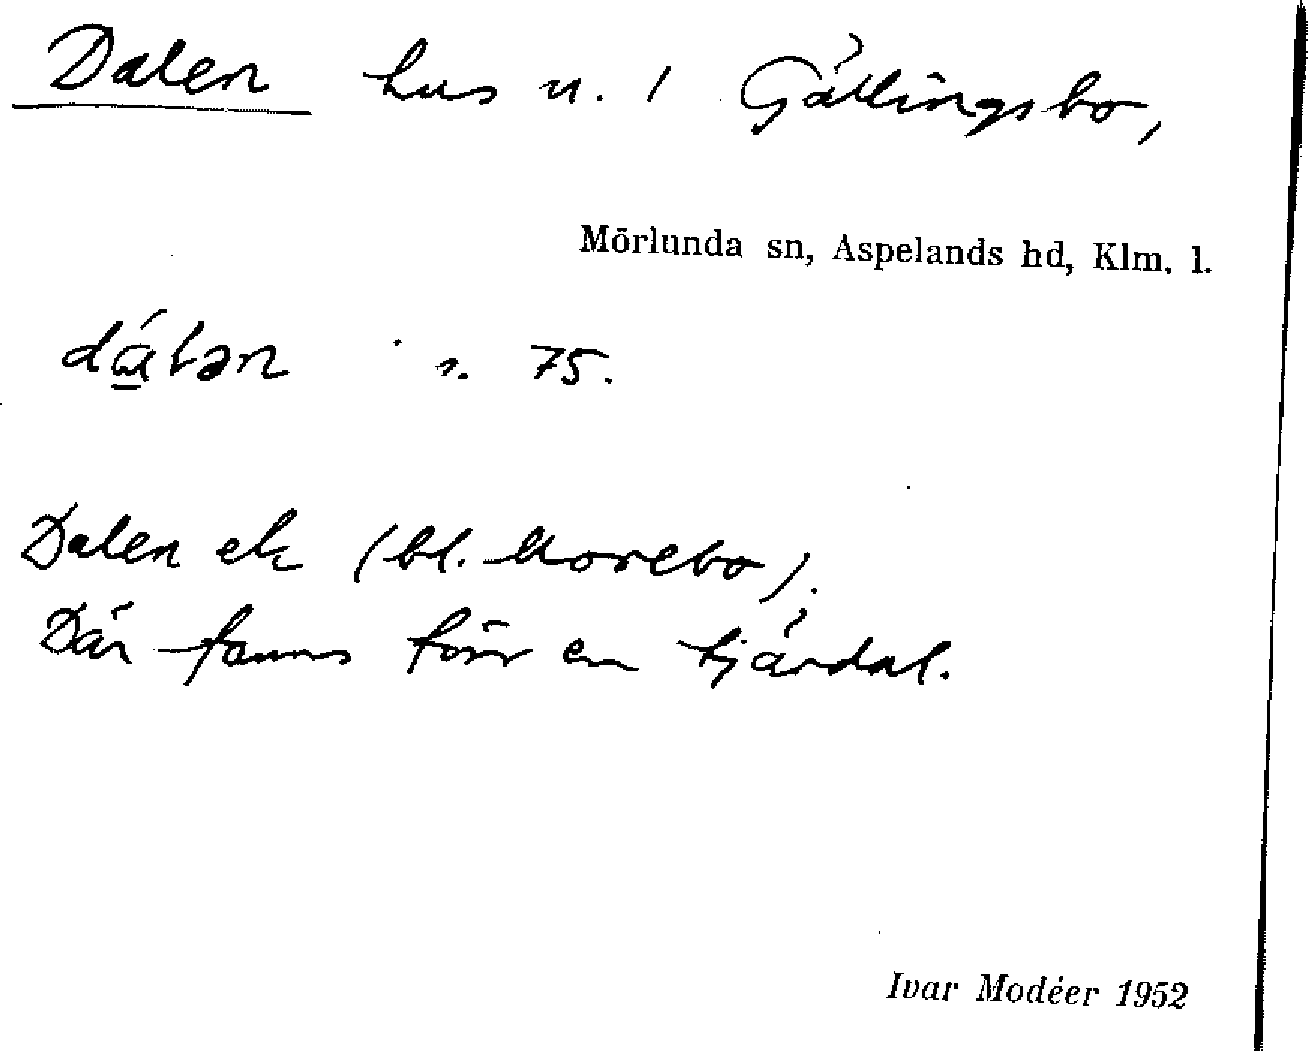 Dalen hus u. 1 Gällingsbo,
Mörlunda sn, Aspelands hd, Klm. l.
s. 75.
Dalen ek (bl. Morebo).
Där fanns förr en tjärdal.
Ivar Modéer 1952